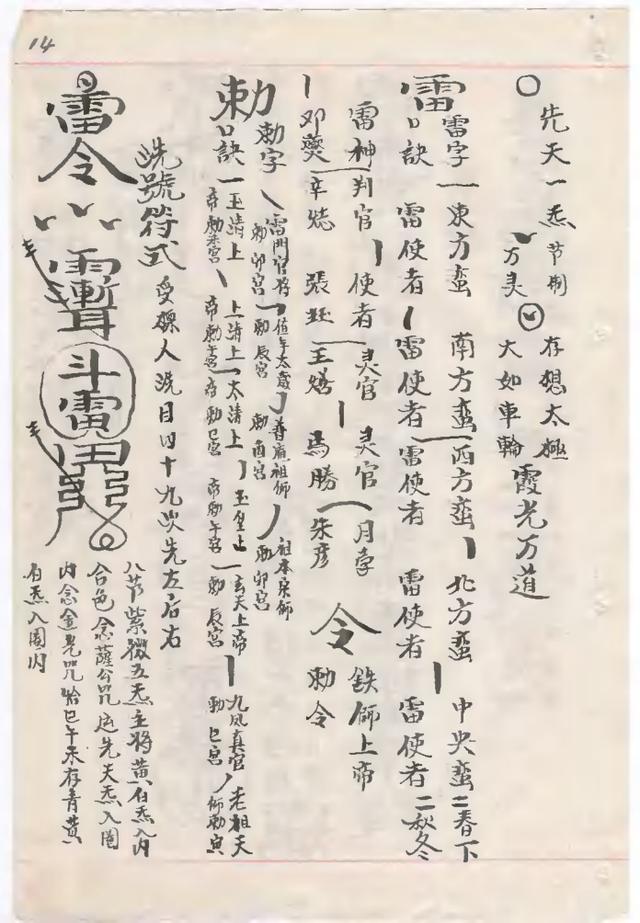 14
○ 先天一炁 节制万灵 存想太極大如車輪 霞光万道
雷 雷字 東方蛮 南方蛮 西方蛮 北方蛮 中央蛮 二春下
口訣 雷使者 雷使者 雷使者 雷使者 雷使者 二秋冬
雷神 判官 使者 灵官 灵官 月孛 令 鉄師上帝
邓燮 辛 張珏 王 馬勝 朱彦 勅令
勅 勅字 雷門官将 值年太歲 普庵祖師 祖本宗師
勅卯宮 勅辰宮 勅酉宮 勅卯宮
口訣 玉清上帝 上清上帝 太清上帝 玉皇上帝 玄天上帝 九凤真官 老祖天師
勅亥宮 勅午宮 勅巳宮 勅午宮 勅辰宮 勅巳宮 勅寅
洗號符式 受 人洗目四十九次先左后右
雷令
斗雷
八节紫微五炁主将黄白炁入内
合色念薩公咒 先天炁入圈
内念金光咒 巳午未存青黄
白炁入圈内